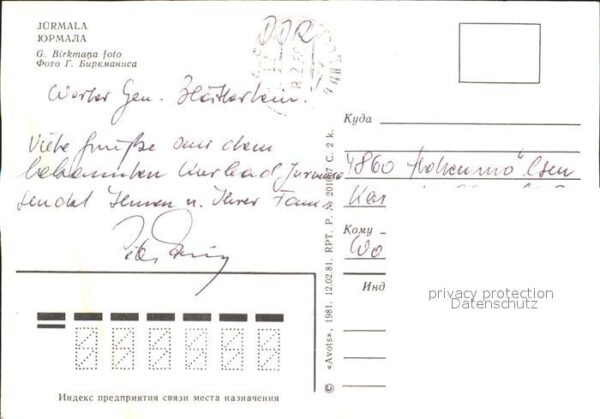 JŪRMALA
ЮРМАЛА
G. Birkmaņa foto
Фото Г. Биркманиса
DDR
Werter Gen.
Viele Grüße aus dem
bekannten Kurbad Jurmala
sendet Ihnen u. Ihrer Fam.
Куда
4860 Hohenmölsen
Кому
Wo
Инд
privacy protection
Datenschutz
© «Avots», 1981. 12.02.81. RPT. P. № C. 2 k.
Индекс предприятия связи места назначения